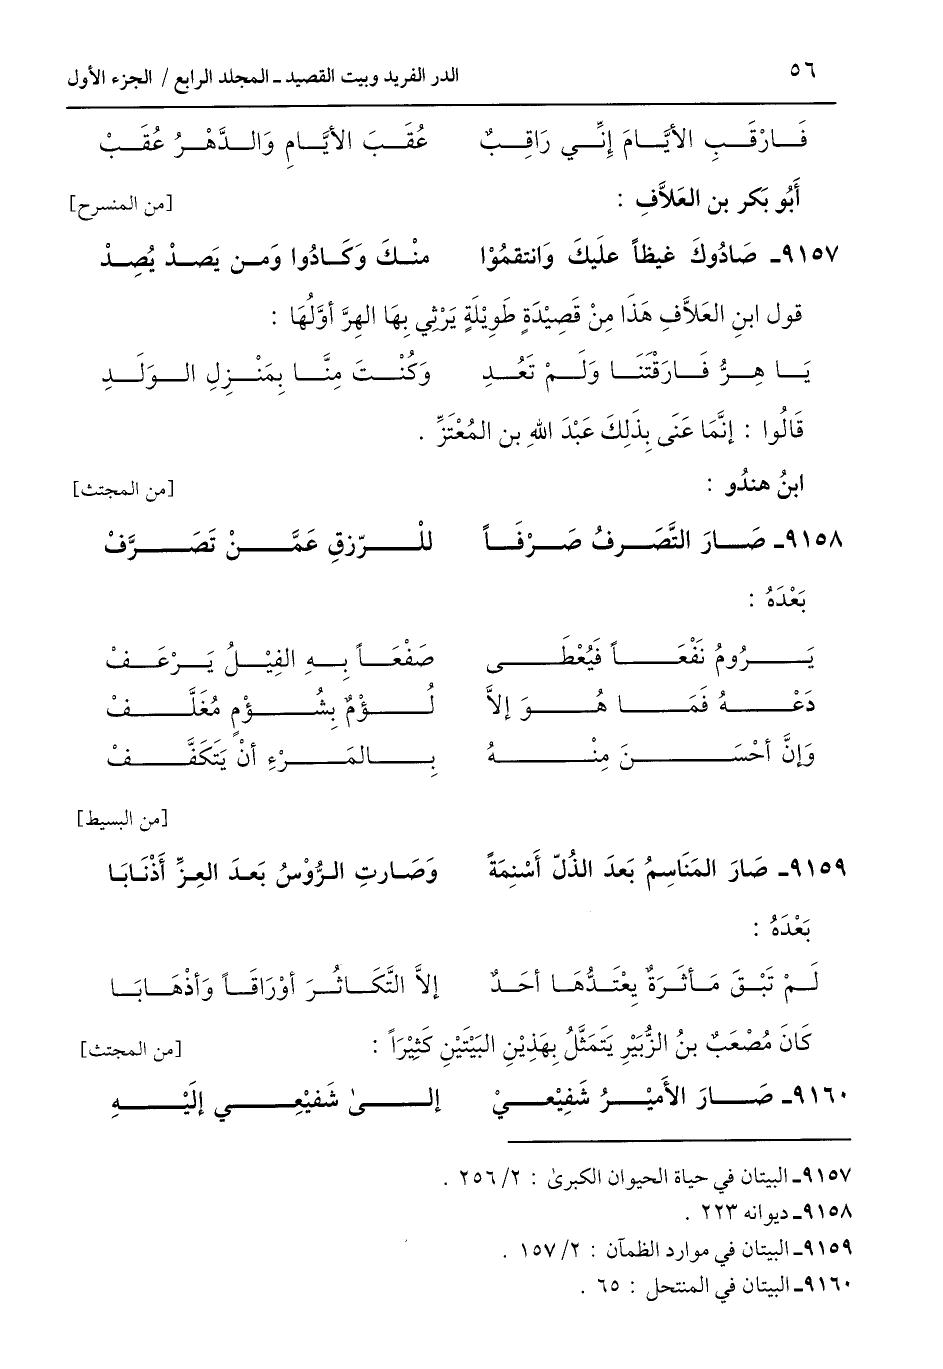 ٥٦ الدر الفريد وبيت القصيد ـ المجلد الرابع / الجزء الأول
فَارْقَبِ الأيَّامَ إنِّي رَاقِبٌ عُقَبَ الأيَّامِ وَالدَّهْرُ عُقَبْ
أَبُو بَكر بن العَلاَّفِ : [من المنسرح]
٩١٥٧ـ صَادُوكَ غيظاً عليكَ وَانتقمُوْا منْكَ وَكَادُوا وَمن يَصدْ يُصِدْ
قول ابنِ العَلاَّفِ هَذَا مِنْ قَصِيْدَةٍ طَوِيْلَةٍ يَرْثِي بِهَا الهِرَّ أوَّلُهَا :
يَا هِرُّ فَارَقْتَنَا وَلَمْ تَعُدِ وَكُنْتَ مِنَّا بِمَنْزِلِ الوَلَدِ
قَالُوا : إنَّمَا عَنَى بِذَلِكَ عَبْدَ اللهِ بن المُعْتَزِّ .
ابنُ هندُو : [من المجتث]
٩١٥٨ـ صَارَ التَّصَرفُ صَرْفَاً للْرّزقِ عَمَّنْ تَصَرَّفْ
بَعْدَهُ :
يَرُومُ نَفْعَاً فَيُعْطَى صَفْعَاً بِهِ الفِيْلُ يَرْعَفْ
دَعْهُ فَمَا هُوَ إلاَّ لُؤْمٌ بِشُؤْمٍ مُغَلَّفْ
وَإنَّ أحْسَنَ مِنْهُ بِالمَرْءِ أنْ يَتَكَفَّفْ
[من البسيط]
٩١٥٩ـ صَارَ المَنَاسِمُ بَعدَ الذُلّ أَسْنِمَةً وَصَارتِ الرُّوْسُ بَعدَ العِزِّ أذْنَابَا
بَعْدَهُ :
لَمْ تَبْقَ مَأثَرَةٌ يعْتَدُّهَا أحَدٌ إلاَّ التَّكَاثُرَ أوْرَاقَاً وَأذْهَابَا
كَانَ مُصْعَبٌ بنُ الزُّبَيْرِ يَتَمَثَّلُ بِهَذْيْنِ البَيْتَيْنِ كَثِيْرَاً : [من المجتث]
٩١٦٠ـ صَارَ الأَميْرُ شَفِيْعيْ إلىٰ شَفيْعِي إليْهِ
٩١٥٧ـ البيتان في حياة الحيوان الكبرىٰ : ٢/ ٢٥٦ .
٩١٥٨ـ ديوانه ٢٢٣ .
٩١٥٩ـ البيتان في موارد الظمآن : ٢/ ١٥٧ .
٩١٦٠ـ البيتان في المنتحل : ٦٥ .